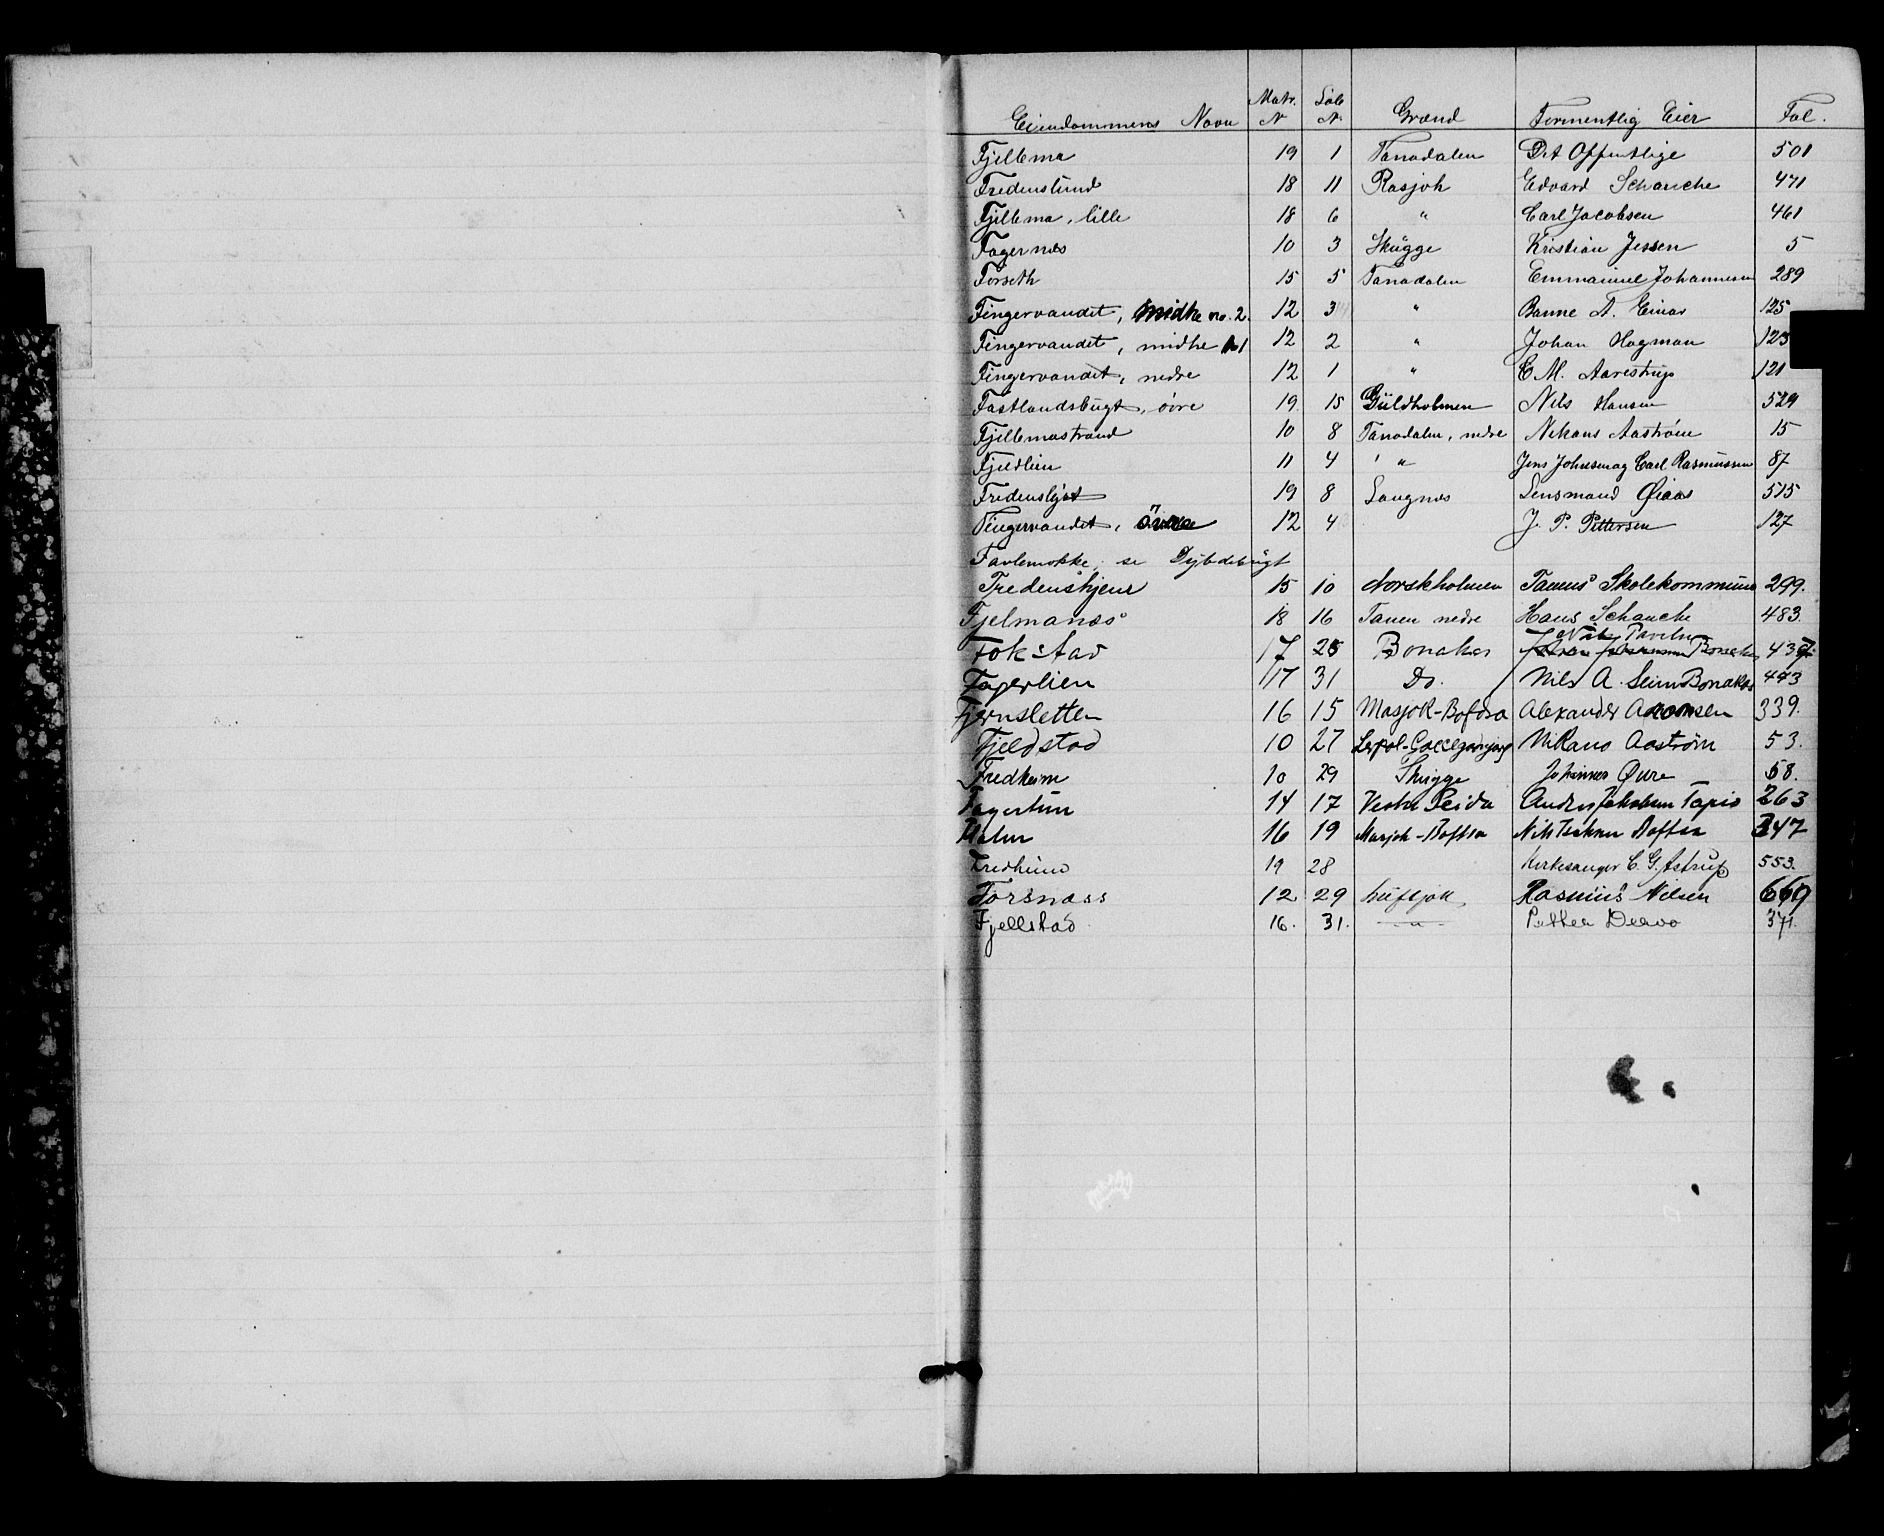 Eiendommens Navn Matr. N Løb N. Grænd Formentlig Eier Fol.
Fjellema 19 1 Tanadalen Det Offentlige 501
Fredenslund 18 11 Rasjok Edvard Schanche 471
Fjellema, lille 18 6 " Carl Jacobsen 461
Fagernes 10 3 Skugge Kristian Jessen 5
Forseth 15 5 Tanadalen Emmanuel Johannesen 289
Fingervandet, midtre no. 2. 12 3 " A. Einar 125
Fingervandet, midtre 1 12 2 " Johan Hagman 123
Fingervandet, nedre 12 1 " E M. Aarestrup 121
Fastlandsbugt, øvre 19 15 Guldholmen Nils Hansen 529
Fjellemastrand 10 8 Tanadalen, nedre Nikanus Aastrøm 15
Fjeldlien 11 4 " Jens Johnsen og Carl Rasmussen 87
Fredenslyst 19 8 Langnes Lensmand Øiaas 515
Fingervandet, Övre 12 4 J. P. Pettersen 127
Favlemokke, se Dybdebugt
Fredenshjem 15 10 Norskholmen Tanens Skolekommune 299.
Fjelmanæs 18 16 Tanen nedre Hans Schanche 483.
Fokstad 17 25 Bonakas Nils Pavelsen Bonakas 437.
Fagerlien 17 31 Do. Nils A. Seim Bonakas 443
Fjernsletten 16 15 Masjok-Bofdsa Alexander Aronsen 339.
Fjeldstad 10 27 Nikano Aastrøm 53.
Fredheim 10 29 Skugge Johannes Øvre 58.
Fagertun 14 17 Vestre Seida Anders Jakobsen Tapio 263
16 19 Masjok-Boftsa Nils Isaksen Boftsa 347
Fredheim 19 28 Kirkesanger C. G. Astrup 553.
Forsnæss 12 29 Luftjok Rasmus Nilsen 669
Fjellstad 16. 31. -"- Petter Dervo 371.